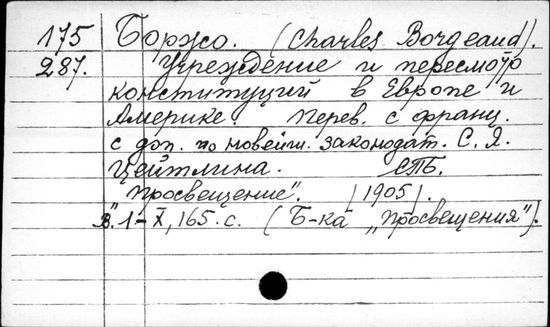 175 Боржо. (Charles Borgeaud).
287. Учреждение и пересмотр
конституций в Европе и
Америке. Перев. с франц.
с доп. по новейш. законодат. С. Я.
Цейтлина. СПБ.
"Просвещение". [1905].
8°. 1-X, 165. с. (Б-ка „Просвещения").